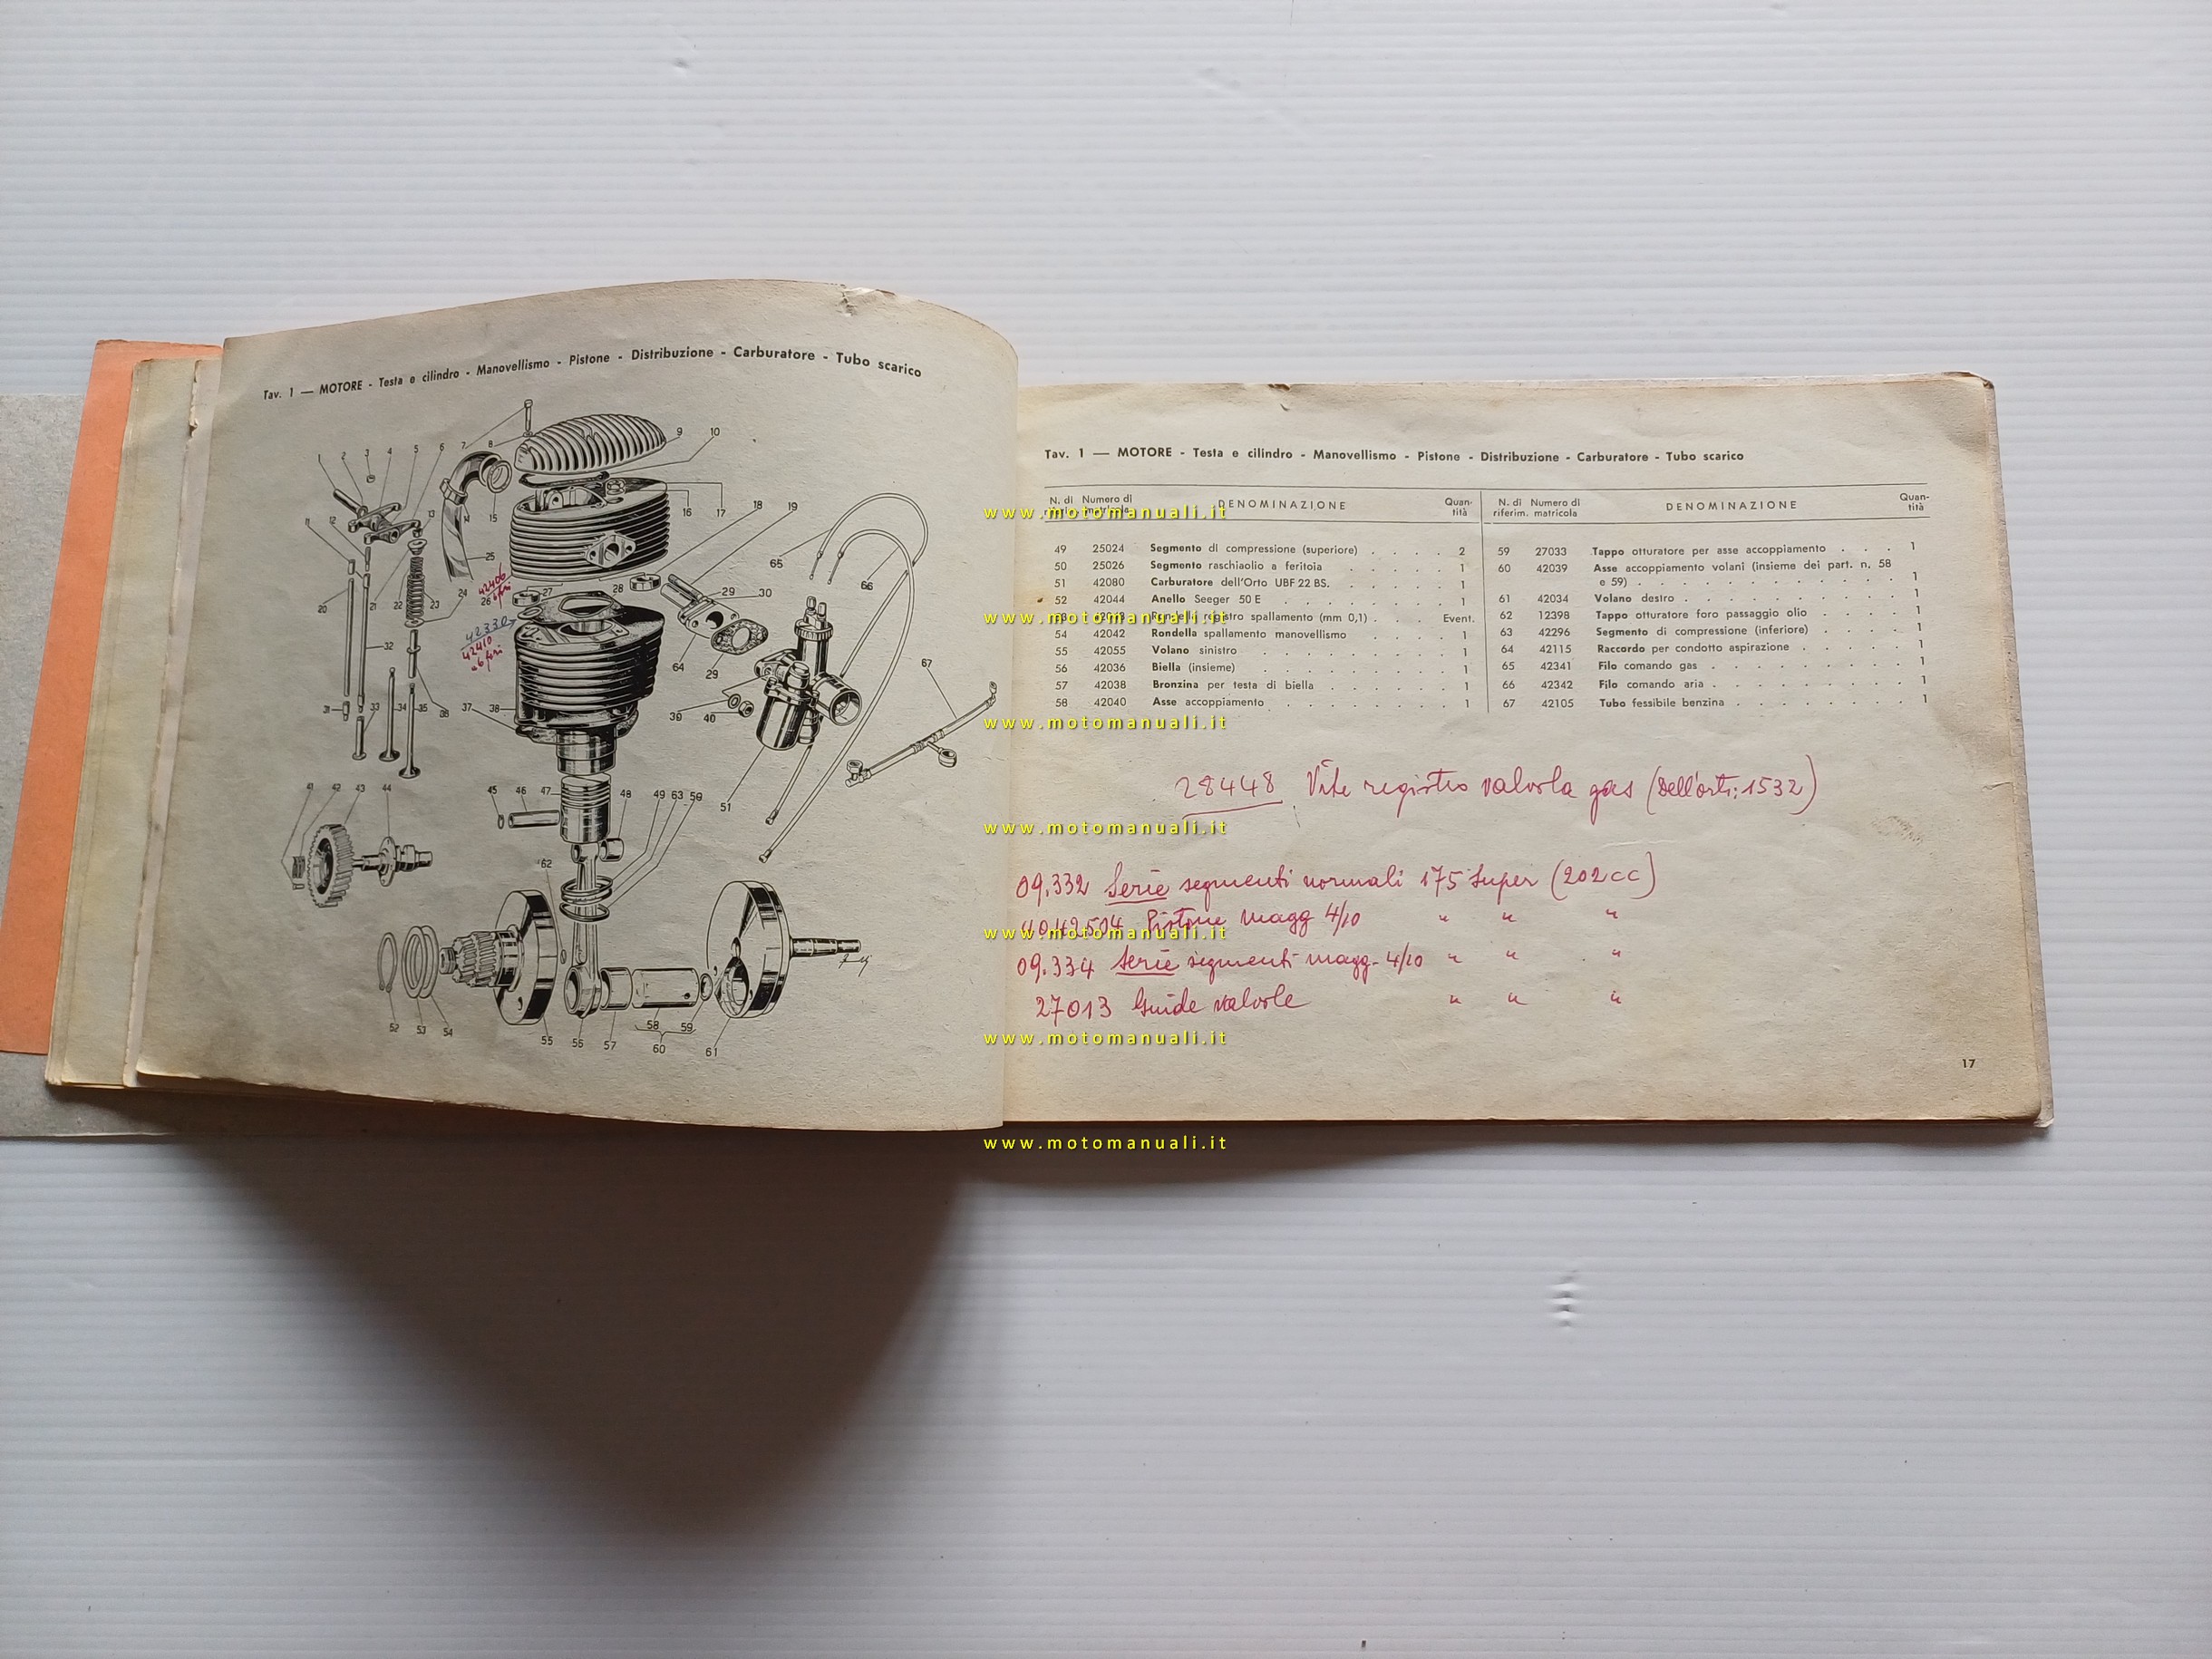 Tav. 1 — MOTORE - Testa e cilindro - Manovellismo - Pistone - Distribuzione - Carburatore - Tubo scarico
1 2 3 4 5 6 7 8 9 10
11 12 13 14 15 16 17 18 19
20 21 22 23 24 25 26 27 28 29 30
42406
6 fori
42330
42410
a 6 fori
31 32 33 34 35 36 37 38 39 40
64 29 65 66 67 51
41 42 43 44 45 46 47 48 49 63 50
62
52 53 54 55 56 57 58 59 60 61
Tav. 1 — MOTORE - Testa e cilindro - Manovellismo - Pistone - Distribuzione - Carburatore - Tubo scarico
N. di Numero di DENOMINAZIONE Quan-tità
N. di riferim. Numero di matricola DENOMINAZIONE Quan-tità
49 25024 Segmento di compressione (superiore) . . . . 2
50 25026 Segmento raschiaolio a feritoia . . . . . 1
51 42080 Carburatore dell'Orto UBF 22 BS. . . . . 1
52 42044 Anello Seeger 50 E . . . . . . . 1
Rondella registro spallamento (mm 0,1) . . . Event.
54 42042 Rondella spallamento manovellismo . . . . 1
55 42055 Volano sinistro . . . . . . . . 1
56 42036 Biella (insieme) . . . . . . . . 1
57 42038 Bronzina per testa di biella . . . . . . 1
58 42040 Asse accoppiamento . . . . . . . 1
59 27033 Tappo otturatore per asse accoppiamento . . . 1
60 42039 Asse accoppiamento volani (insieme dei part. n. 58
e 59) . . . . . . . . . . 1
61 42034 Volano destro . . . . . . . . 1
62 12398 Tappo otturatore foro passaggio olio . . . . 1
63 42296 Segmento di compressione (inferiore) . . . . 1
64 42115 Raccordo per condotto aspirazione . . . . 1
65 42341 Filo comando gas . . . . . . . . 1
66 42342 Filo comando aria . . . . . . . . 1
67 42105 Tubo fessibile benzina . . . . . . . 1
28448 Vite registro valvola gas (Dell'orto: 1532)
09.332 Serie segmenti normali 175 Super (202cc)
4042504 Pistone magg 4/10 " " "
09.334 Serie segmenti magg. 4/10 " " "
27013 Guide valvole " " "
17
www.motomanuali.it
www.motomanuali.it
www.motomanuali.it
www.motomanuali.it
www.motomanuali.it
www.motomanuali.it
www.motomanuali.it